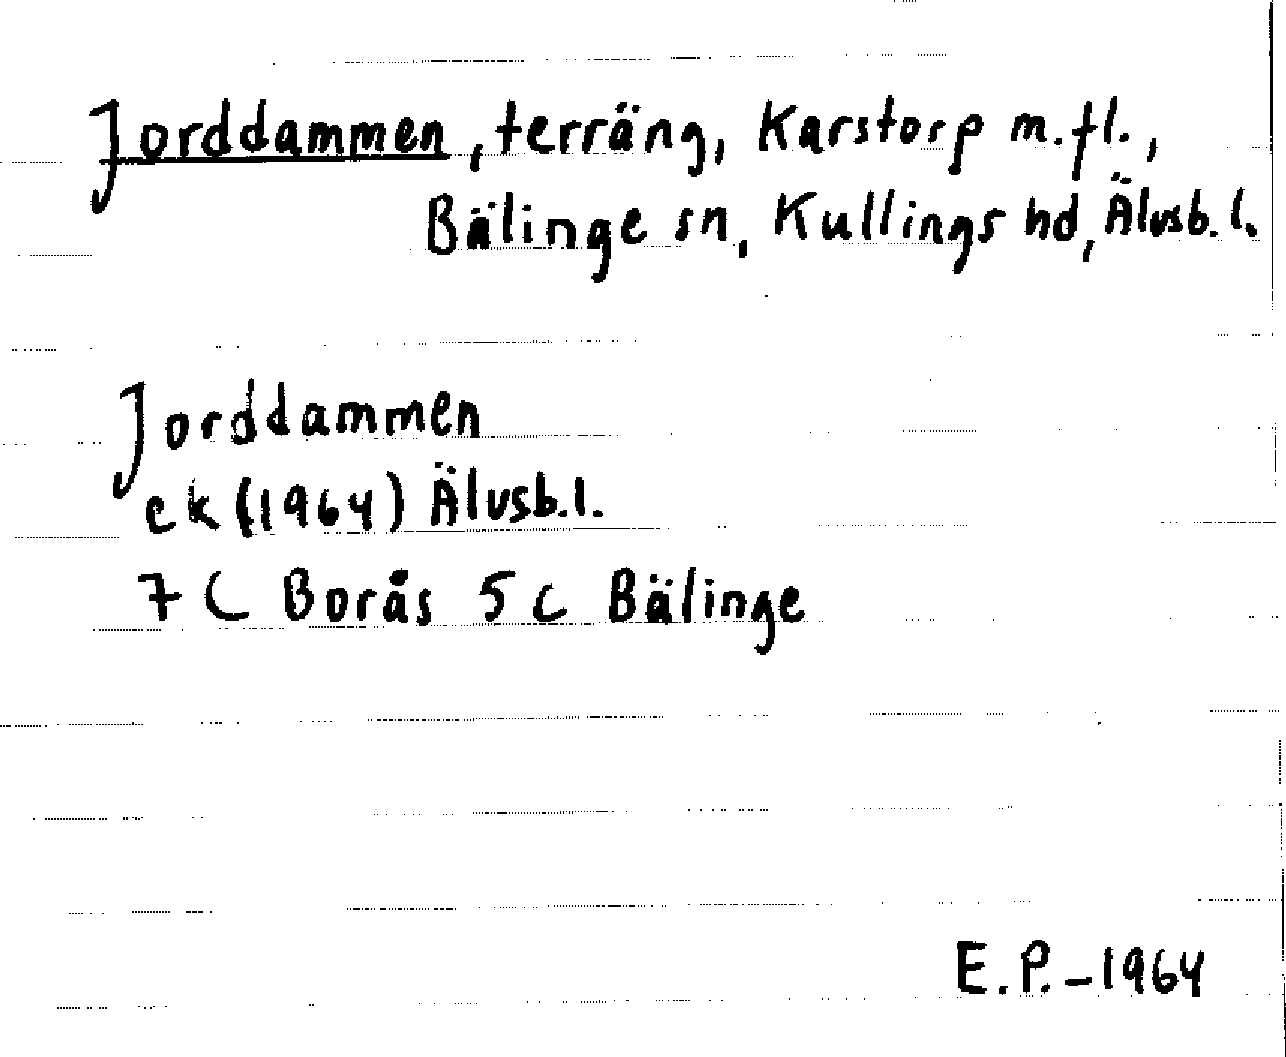 Jorddammen, terräng, Karstorp m.fl.,
Bälinge sn, Kullings hd, Älvsb. l.
Jorddammen
ek (1964) Älvsb.l.
7 C Borås 5 c Bälinge
E.P. - 1964